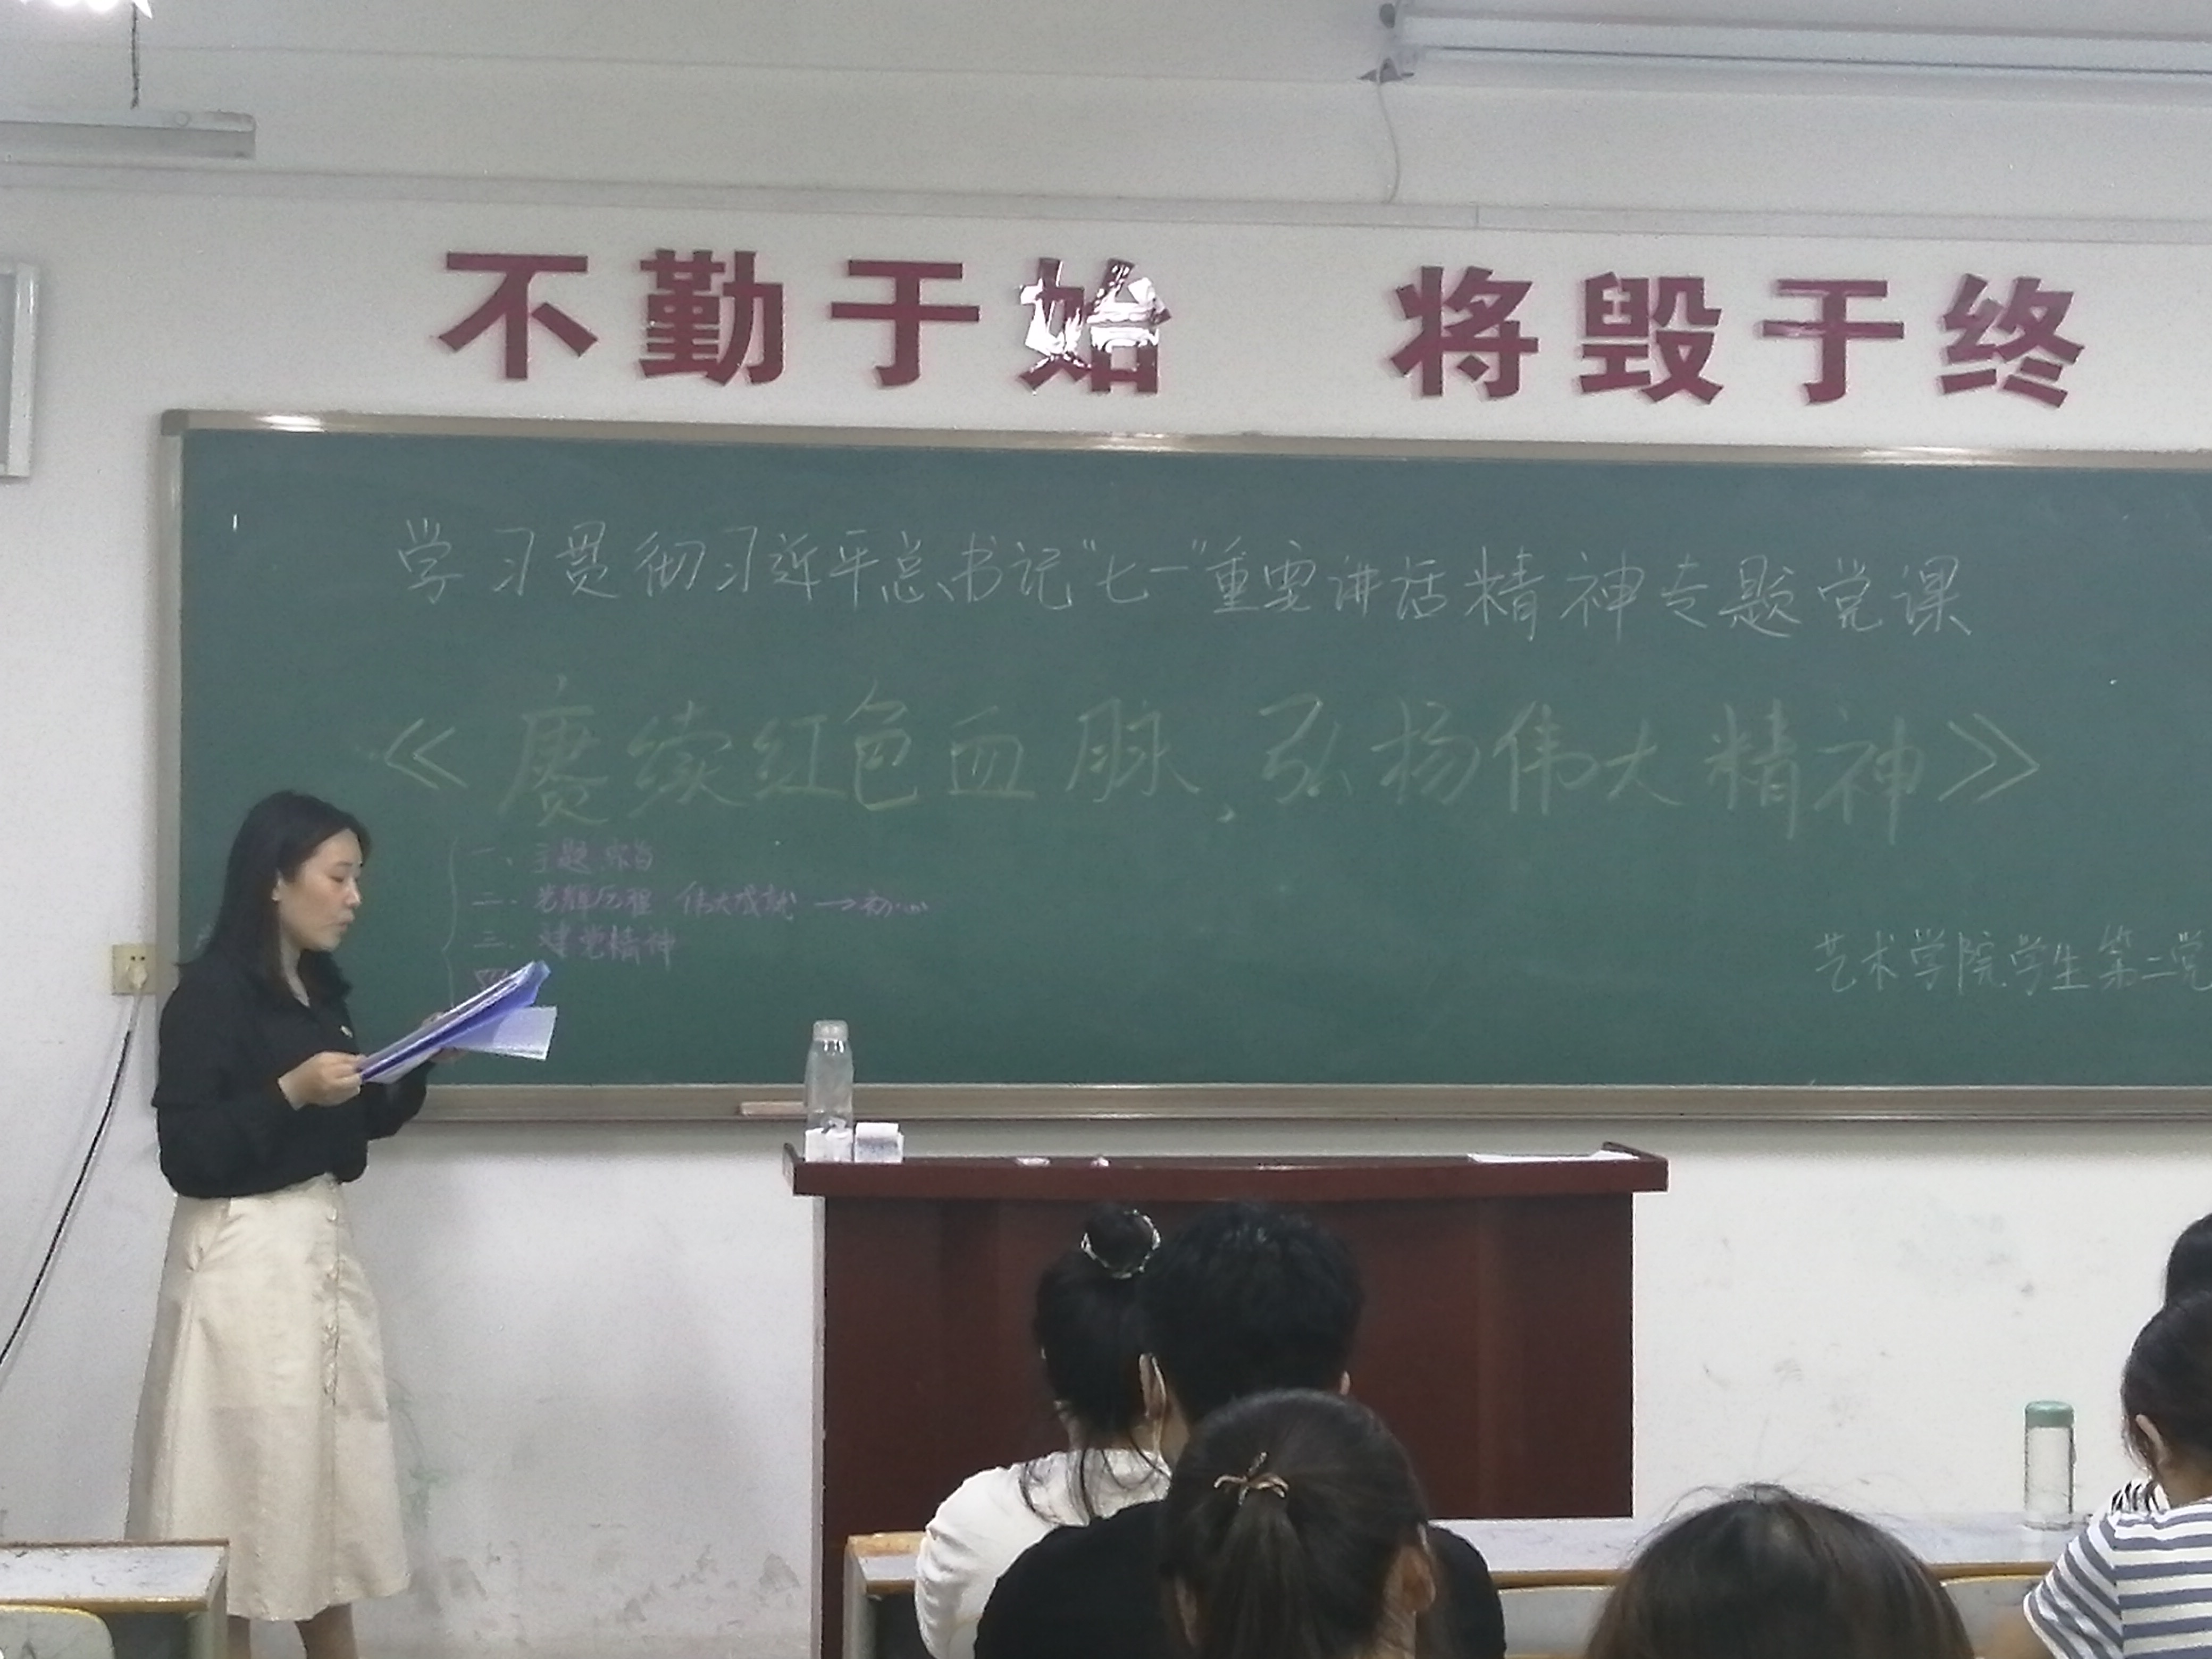 不勤于始 将毁于终
学习贯彻习近平总书记“七一”重要讲话精神专题党课
《赓续红色血脉，弘扬伟大精神》
一、主题宗旨
二、光辉历程 伟大成就→初心
三、建党精神
四
艺术学院学生第二党